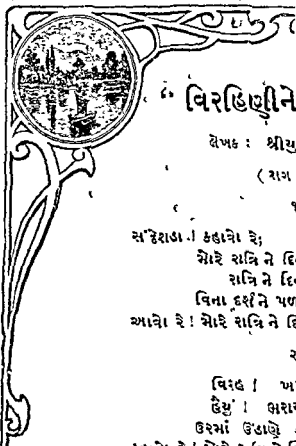 વિરહિણીને
લેખક : શ્રીયુ
( રાગ
સંદેશડા ! કહાવો રે;
મોરે રાત્રિ ને દિ
રાત્રિ ને દિ
વિના દર્શને પળ
આવો રે ! મોરે રાત્રિ ને દિ
વિરહ !
હૈયું !
ઉરમાં ઉડાણે